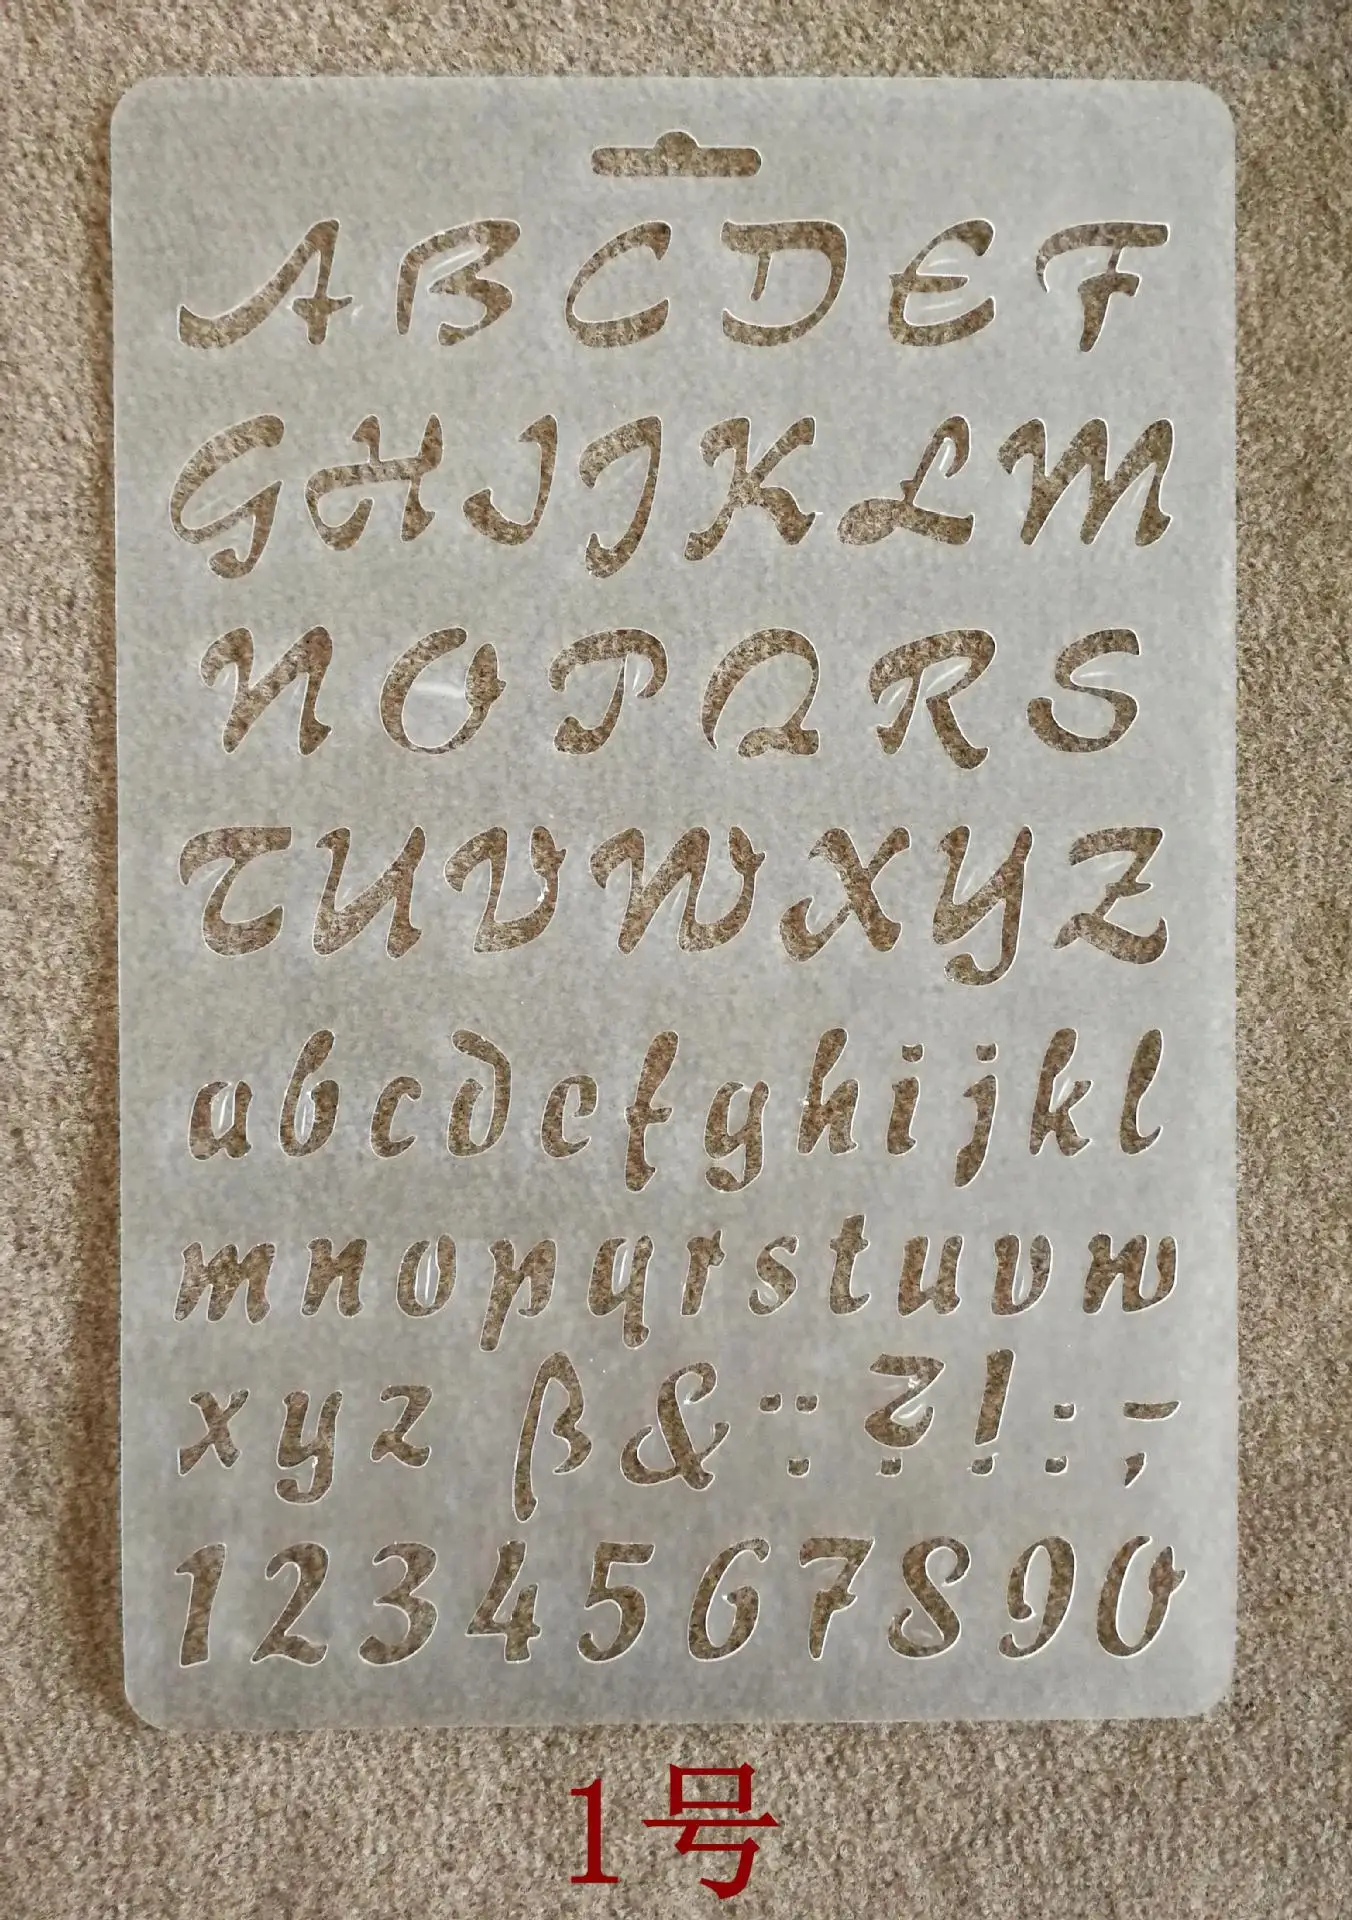 ABCDEF
GHIJKLM
NOPQRS
TUVWXYZ
abcdefghijkl
mnopqrstuvw
xyz ß & ¨. ?!: -,
1234567890
1号